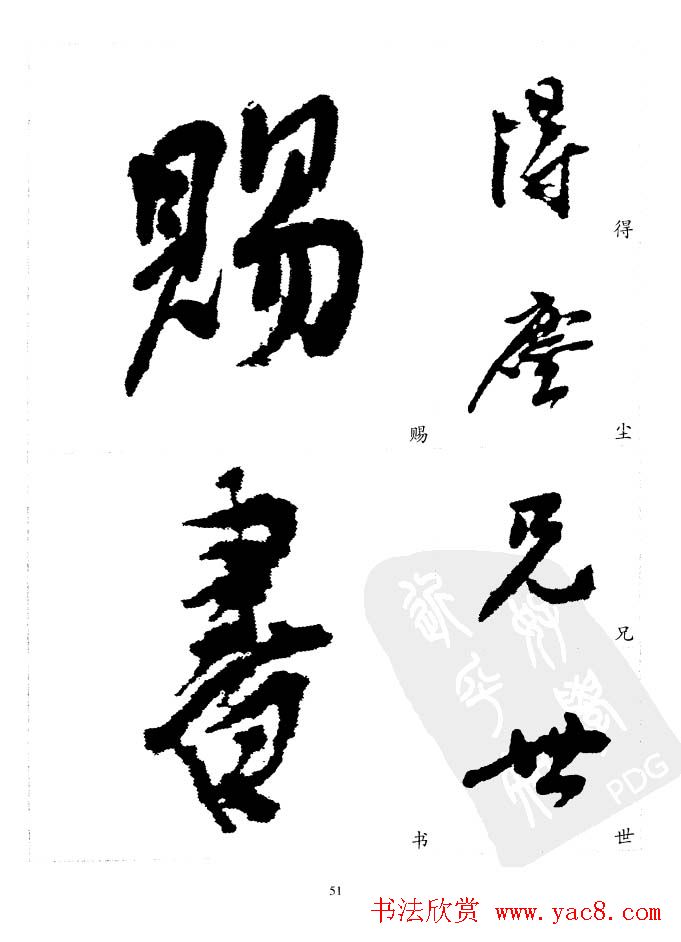 得
得
塵
尘
兄
兄
世
世
賜
赐
書
书
PDG
51
书法欣赏 www.yac8.com